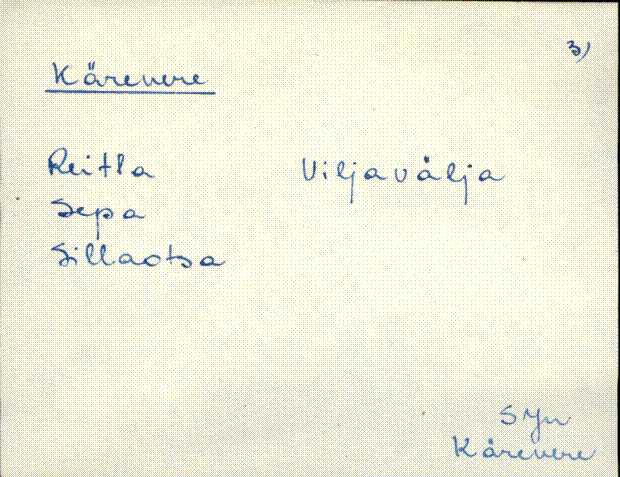 3)
Kärevere
Reitla Viljavälja
Sepa
Sillaotsa
SJn
Kärevere